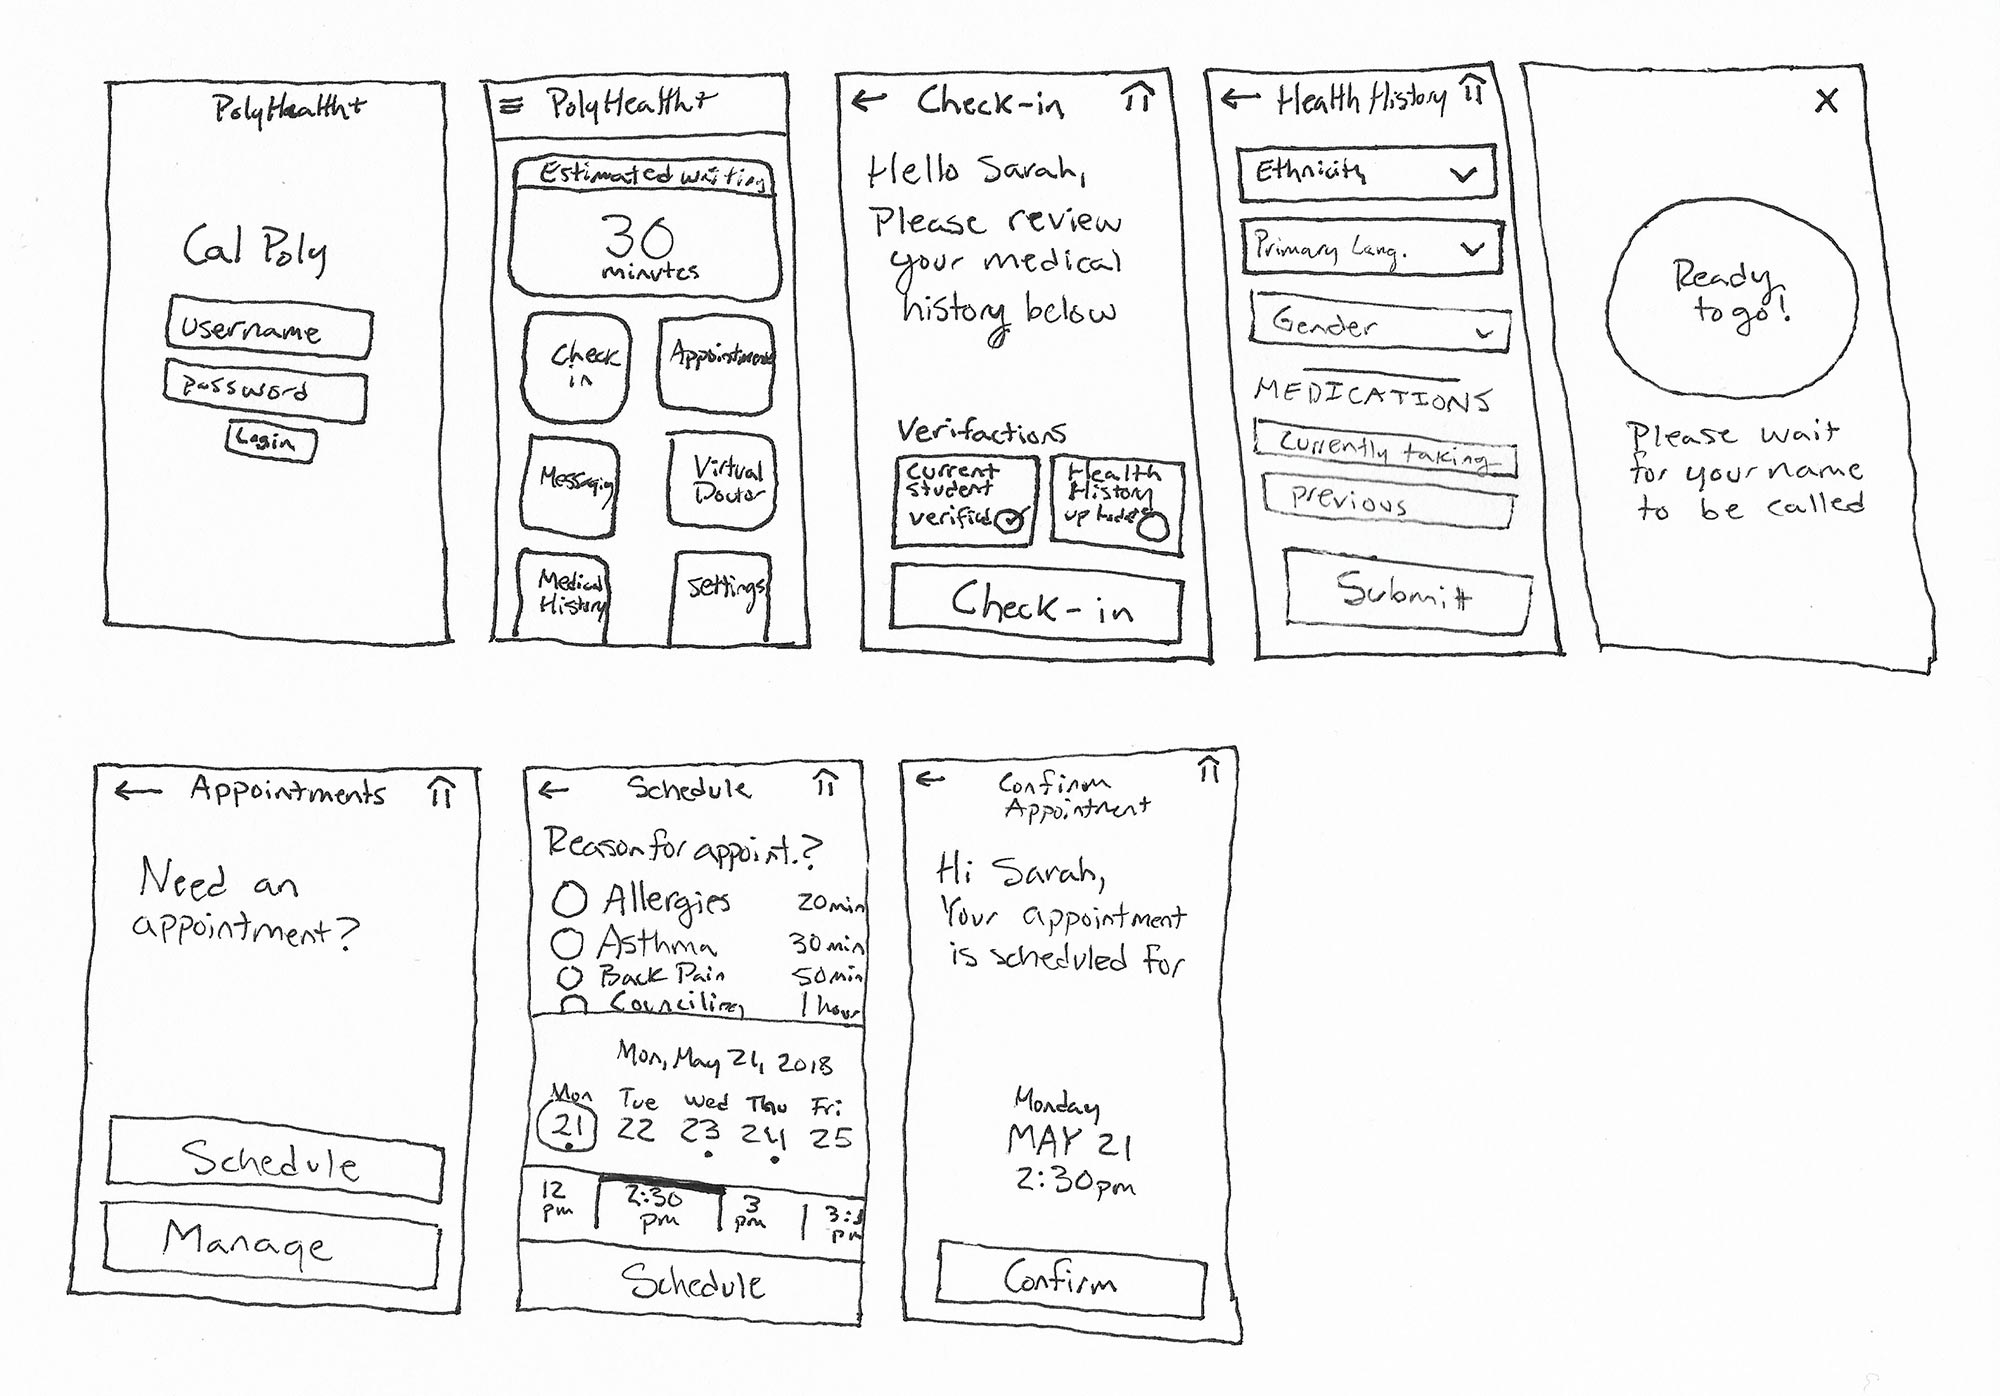 PolyHealth+
Cal Poly
username
password
Login
PolyHealth+
Estimated waiting
30
minutes
Check
in
Appointments
Messaging
Virtual
Doctor
Medical
History
Settings
Check-in
Hello Sarah,
Please review
your medical
history below
Verifactions
Current
student
verified
Health
History
up to date
Check-in
Health History
Ethnicity
Primary Lang.
Gender
MEDICATIONS
Currently taking
previous
Submit
X
Ready
to go!
Please wait
for your name
to be called
Appointments
Need an
appointment?
Schedule
Manage
Schedule
Reason for appoint.?
Allergies 20min
Asthma 30min
Back Pain 50min
Counciling 1 hour
Mon, May 21, 2018
Mon Tue Wed Thu Fri
21 22 23 24 25
12 2:30 3 3:3
pm pm pm pm
Schedule
Confirm
Appointment
Hi Sarah,
Your appointment
is scheduled for
Monday
MAY 21
2:30pm
Confirm